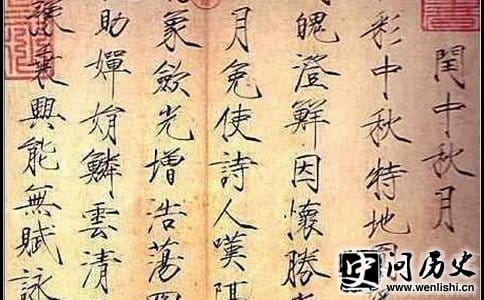 閏中秋月
彩中秋特地圓
魄澄鮮因懷勝
月免使詩人嘆隔
象歛光增浩蕩
助嬋娟鱗雲清
豫乘興能無賦詠
问历史
www.wenlishi.com